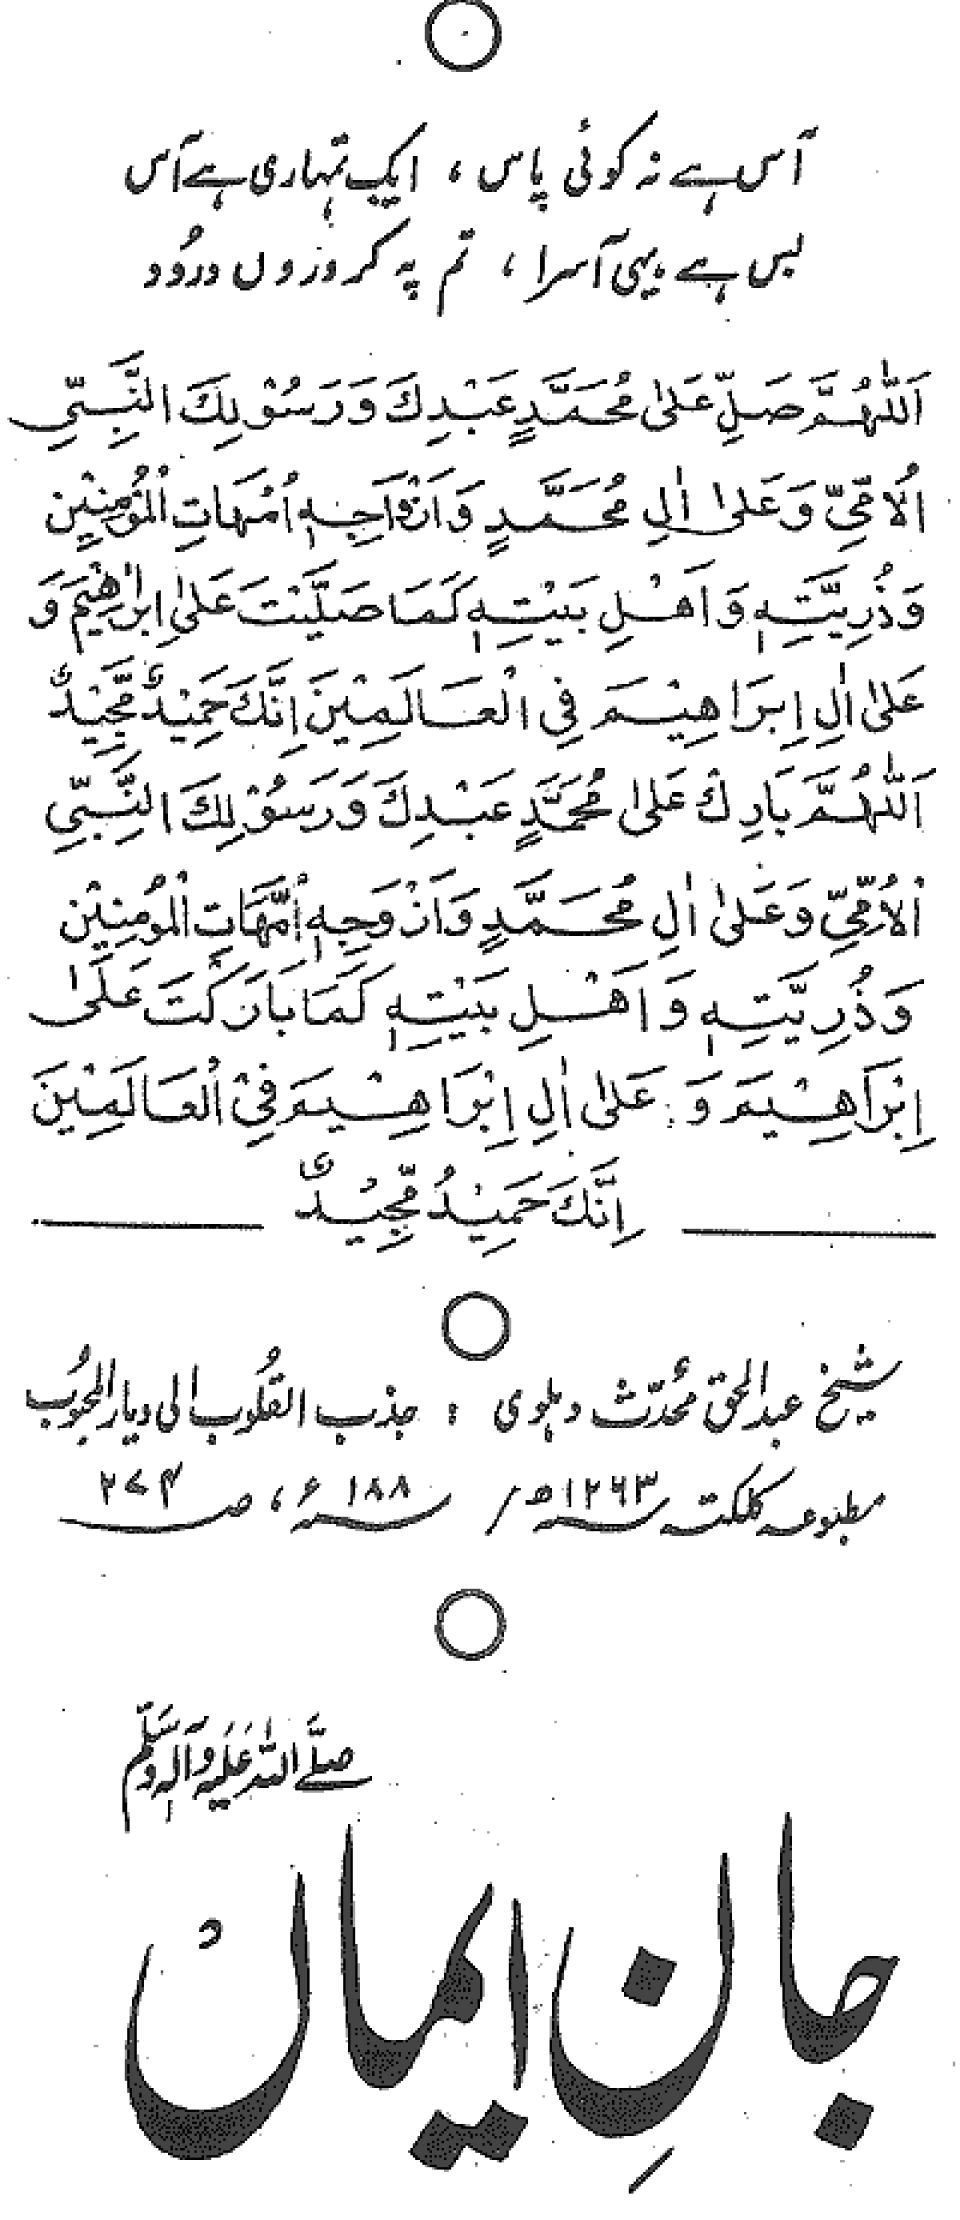 آس ہے نہ کوئی پاس ، ایک تمہاری ہے آس
بس ہے یہی آسرا ، تم پہ کروڑوں درُود
اَللّٰهُمَّ صَلِّ عَلیٰ مُحَمَّدٍ عَبْدِكَ وَرَسُوْلِكَ النَّبِیِّ
الْاُمِّیِّ وَعَلیٰ اٰلِ مُحَمَّدٍ وَاَزْوَاجِهٖ اُمَّهَاتِ الْمُؤْمِنِیْن
وَذُرِیَّتِهٖ وَاَهْلِ بَیْتِهٖ کَمَا صَلَّیْتَ عَلیٰ اِبرَاهِیْمَ وَ
عَلیٰ اٰلِ اِبرَاهِیْمَ فِی الْعَالَمِیْنَ اِنَّكَ حَمِیْدٌ مَّجِیْدٌ
اَللّٰهُمَّ بَارِكْ عَلیٰ مُحَمَّدٍ عَبْدِكَ وَرَسُوْلِكَ النَّبِیِّ
الْاُمِّیِّ وَعَلیٰ اٰلِ مُحَمَّدٍ وَاَزْوَجِهٖ اُمَّهَاتِ الْمُؤمِنِیْن
وَذُرِیَّتِهٖ وَاَهْلِ بَیْتِهٖ کَمَا بَارَکْتَ عَلَیٰ
اِبْرَاهِیْمَ وَ عَلیٰ اٰلِ اِبْرَاهِیْمَ فِیْ الْعَالَمِیْنَ
اِنَّكَ حَمِیْدُ مَّجِیْدٌ
شیخ عبدالحق مُحدّث دہلوی : جذب القلُوب الی دیار المحبُوب
مطبوعہ کلکتہ ۱۲۶۳ھ / ۱۸۸ ء ، ص ۲۷۴
صلَّے اللہ عَلَیہ وَآلہٖ وسَلّم
جانِ ایماں